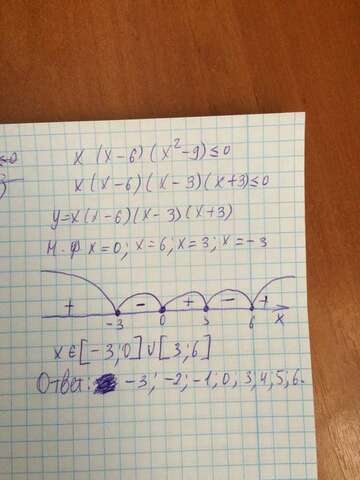 ≤0
x (x-6) (x²-9)≤0
x(x-6)(x-3)(x+3)≤0
y=x(x-6)(x-3)(x+3)
Н.ф x=0; x=6; x=3; x=-3
+ - + - +
-3 0 3 6 x
x∈[-3;0]∪[3;6]
Ответ: -3; -2; -1; 0, 3; 4; 5; 6.